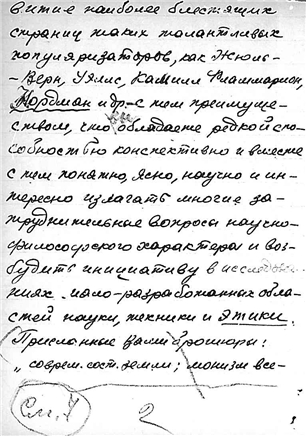 витие наиболее блестящих
страниц таких талантливых
популяризаторов, как Жюль-
-Верн, Уэллс, Камилл Фламмарион,
Нордман и др.-с тем преимуще-
ством, что Вы обладаете редкой спо-
собностью конспективно и вместе
с тем понятно, ясно, научно и ин-
тересно излагать многие за-
труднительные вопросы научно-
философского характера и воз-
будить инициативу в исследова-
ниях мало-разработанных обла-
стей науки, техники и этики.
Присланные Вами брошюры:
„соврем. сост. земли; монизм все-
См. 7
2